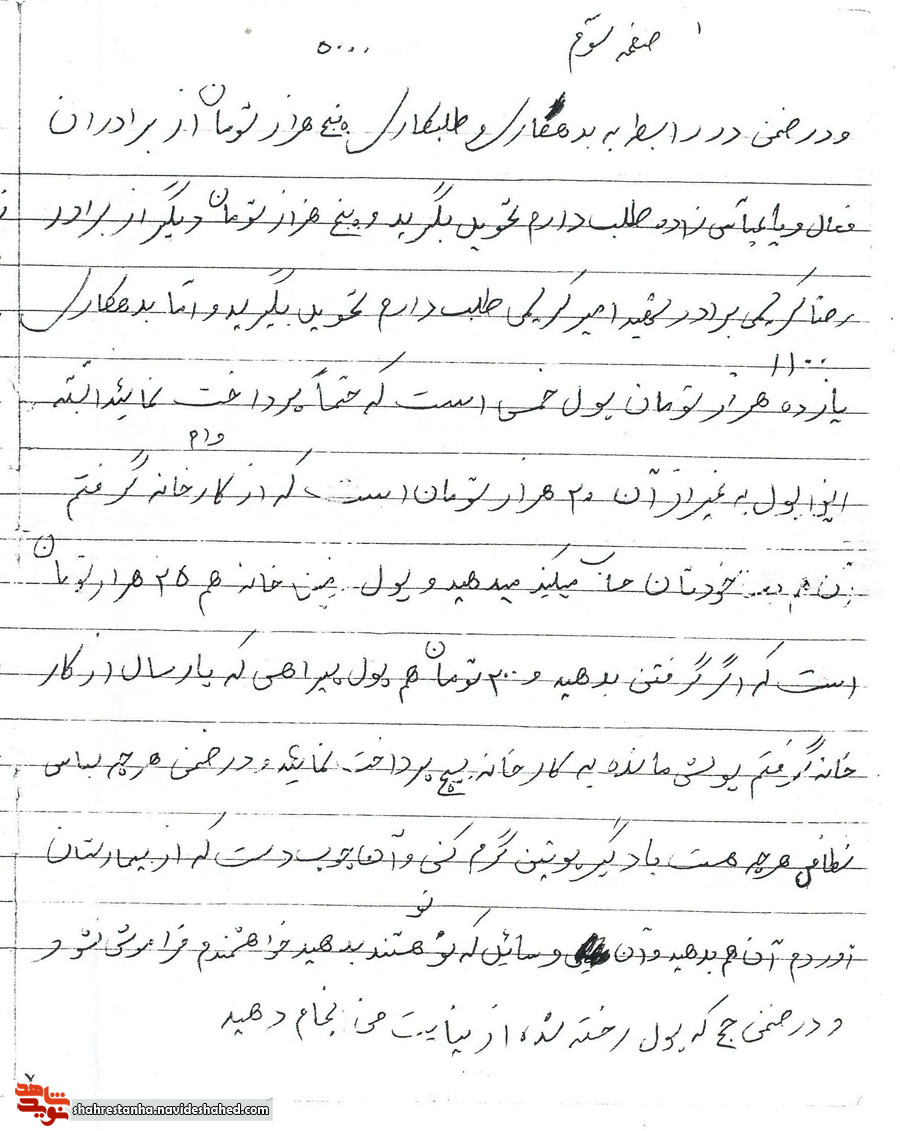 ۱ صفحه سوم
۵۰۰۰
و در ضمن در رابطه به بدهکاری و طلبکاری پنج هزار تومان از برادران
فعال و یا عباس زاده طلب دارم تحویل بگیرید و پنج هزار تومان دیگر از برادر
رضا کریمی برادر شهید امیر کریمی طلب دارم تحویل بگیرید و اما بدهکاری
۱۱۰۰۰
یازده هزار تومان پول خمس است که حتماً پرداخت نمائید البته
وام
این پول به غیر از آن ۲۰ هزار تومان است که از کارخانه گرفتم
آن هم خودتان میدهید و پول خانه هم ۲۵ هزار تومان
است که اگر گرفتن بدهید و ۳۰۰ تومان هم پول پیراهی که پارسال از کار
خانه گرفتم پولش مانده به کارخانه پرداخت نمائید و در ضمن هر چه لباس
نظامی هر چه هست با دیگر پوتین گرم کن و آن چوب دست که از بیمارستان
نو
آوردم آن هم بدهید و آن وسائل که نو هستند بدهید خواهشمندم فراموش نشود
و در ضمن حج که پول رخته شده از نیابت من انجام دهید
۷
نوید شاهد
shahrestanha.navideshahed.com